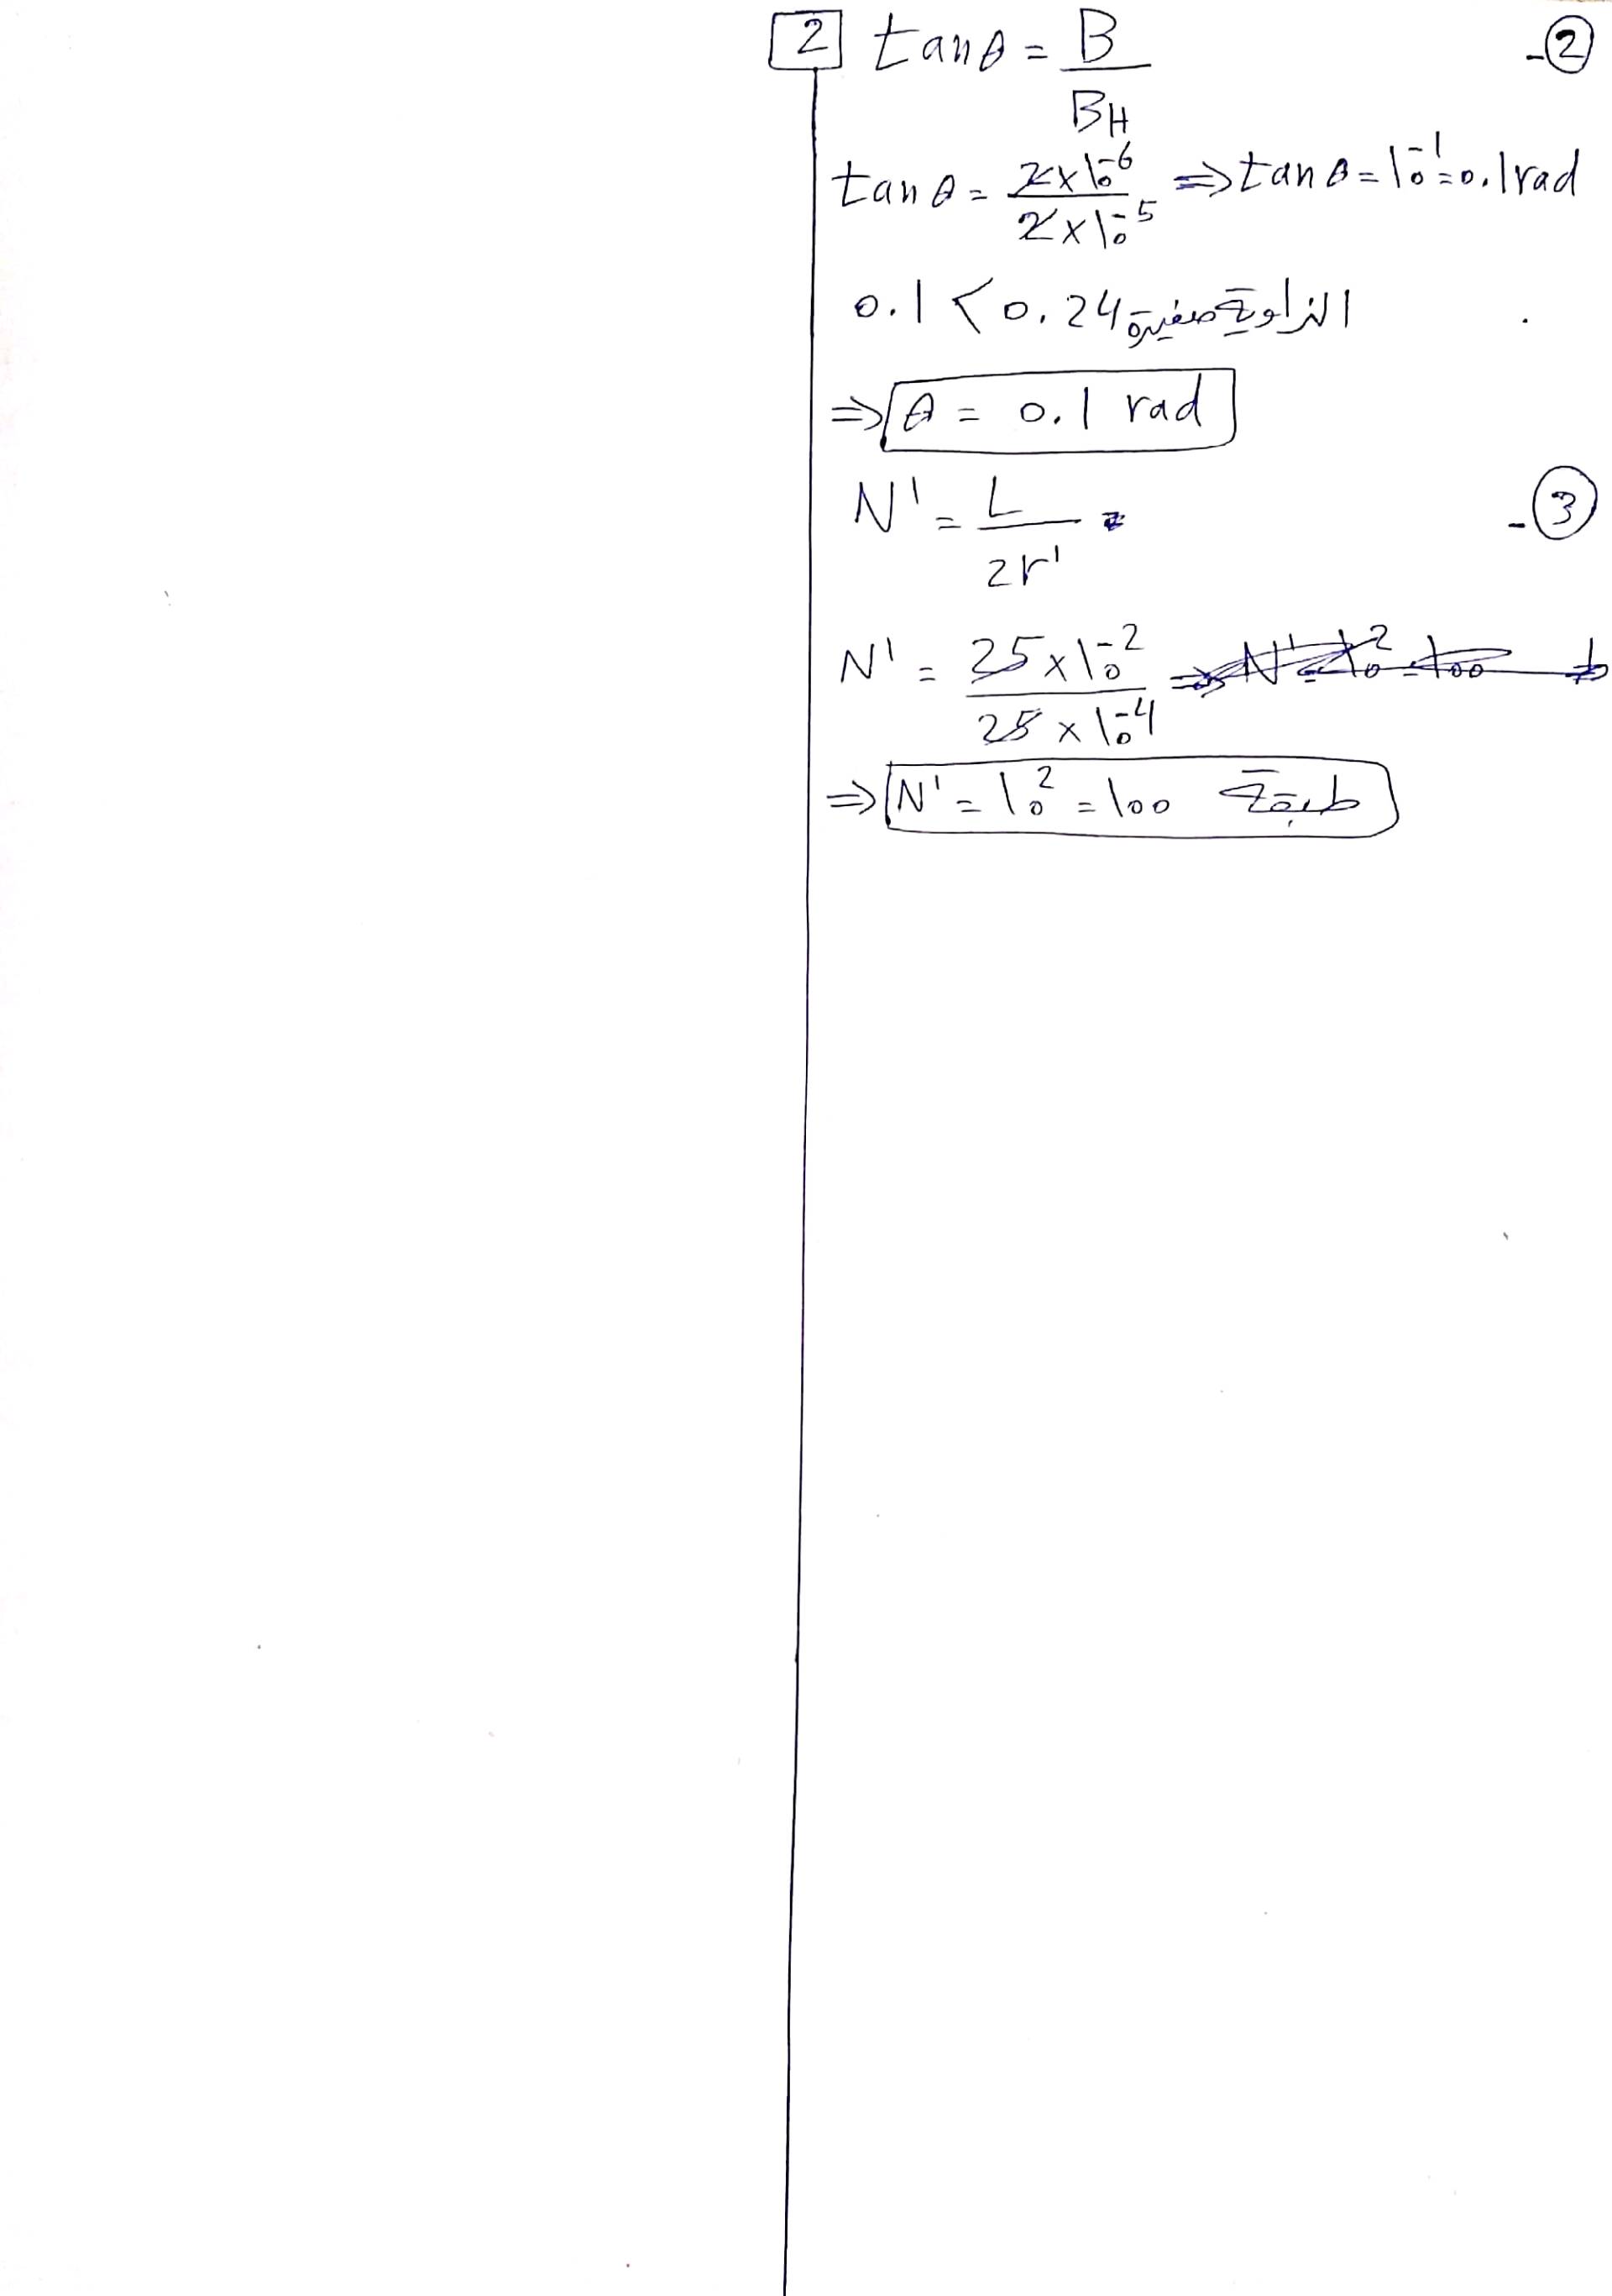 2 tanθ = B / B_H -②
tanθ = 2×10^-6 / 2×10^-5 ⇒ tanθ = 10^-1 = 0.1 rad
0.1 < 0.24 الزاوية صغيرة
⇒ θ = 0.1 rad
N' = L / 2r' = -③
N' = 25×10^-2 / 25×10^-4 ⇒ N' = 10^2 = 100 ط
⇒ N' = 10^2 = 100 طبقة